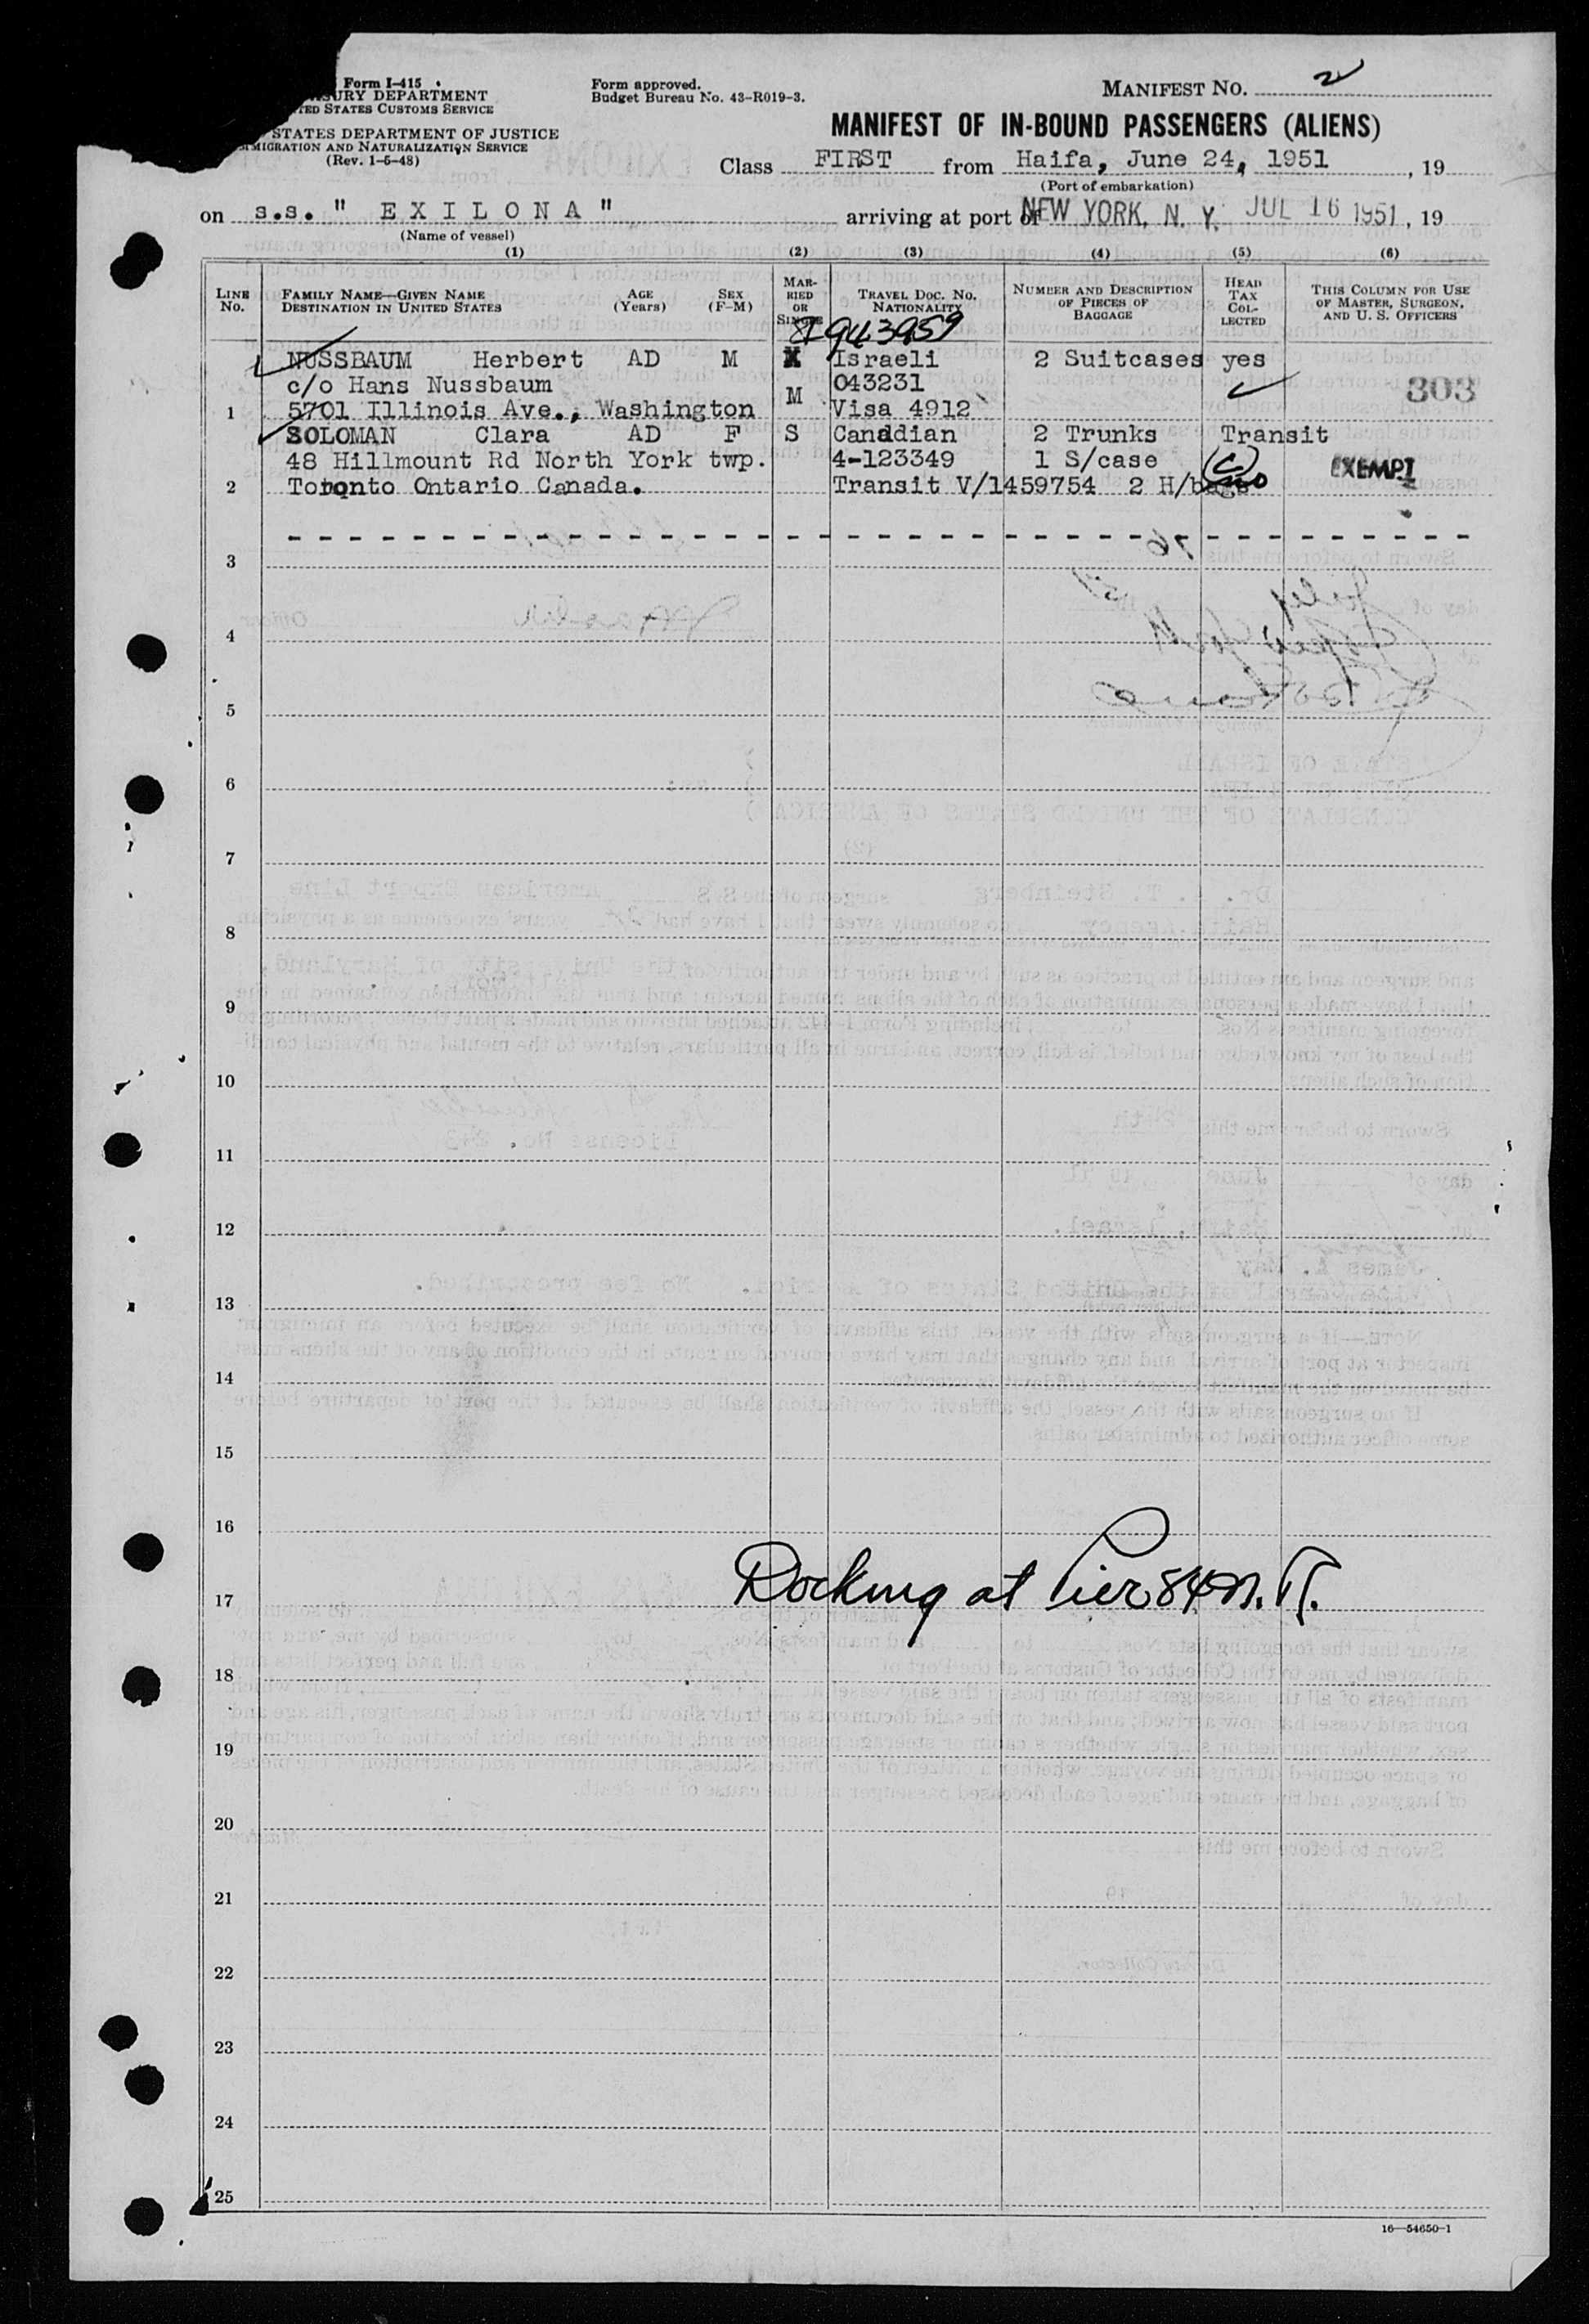 Form I-415
SURY DEPARTMENT
TED STATES CUSTOMS SERVICE
STATES DEPARTMENT OF JUSTICE
MIGRATION AND NATURALIZATION SERVICE
(Rev. 1-5-48)
Form approved.
Budget Bureau No. 43-R019-3.
MANIFEST NO. 2
MANIFEST OF IN-BOUND PASSENGERS (ALIENS)
Class FIRST from Haifa, June 24, 1951, 19
(Port of embarkation)
on s.s. " E X I L O N A " arriving at port of NEW YORK, N. Y. JUL 16 1951, 19
(Name of vessel)
(1) (2) (3) (4) (5) (6)
LINE No. FAMILY NAME—GIVEN NAME DESTINATION IN UNITED STATES AGE (Years) SEX (F-M) MARRIED OR SINGLE TRAVEL DOC. NO. NATIONALITY NUMBER AND DESCRIPTION OF PIECES OF BAGGAGE HEAD TAX COLLECTED THIS COLUMN FOR USE OF MASTER, SURGEON, AND U. S. OFFICERS
943959
NUSSBAUM Herbert AD M X Israeli 2 Suitcases yes
c/o Hans Nussbaum M 043231 303
1 5701 Illinois Ave., Washington Visa 4912
SOLOMAN Clara AD F S Canadian 2 Trunks Transit
48 Hillmount Rd North York twp. 4-123349 1 S/case (C) EXEMPT
2 Toronto Ontario Canada. Transit V/1459754 2 H/bags
3
4
5
6
7
8
9
10
11
12
13
14
15
16
17 Docking at Pier 84 N. R.
18
19
20
21
22
23
24
25
16—54650-1